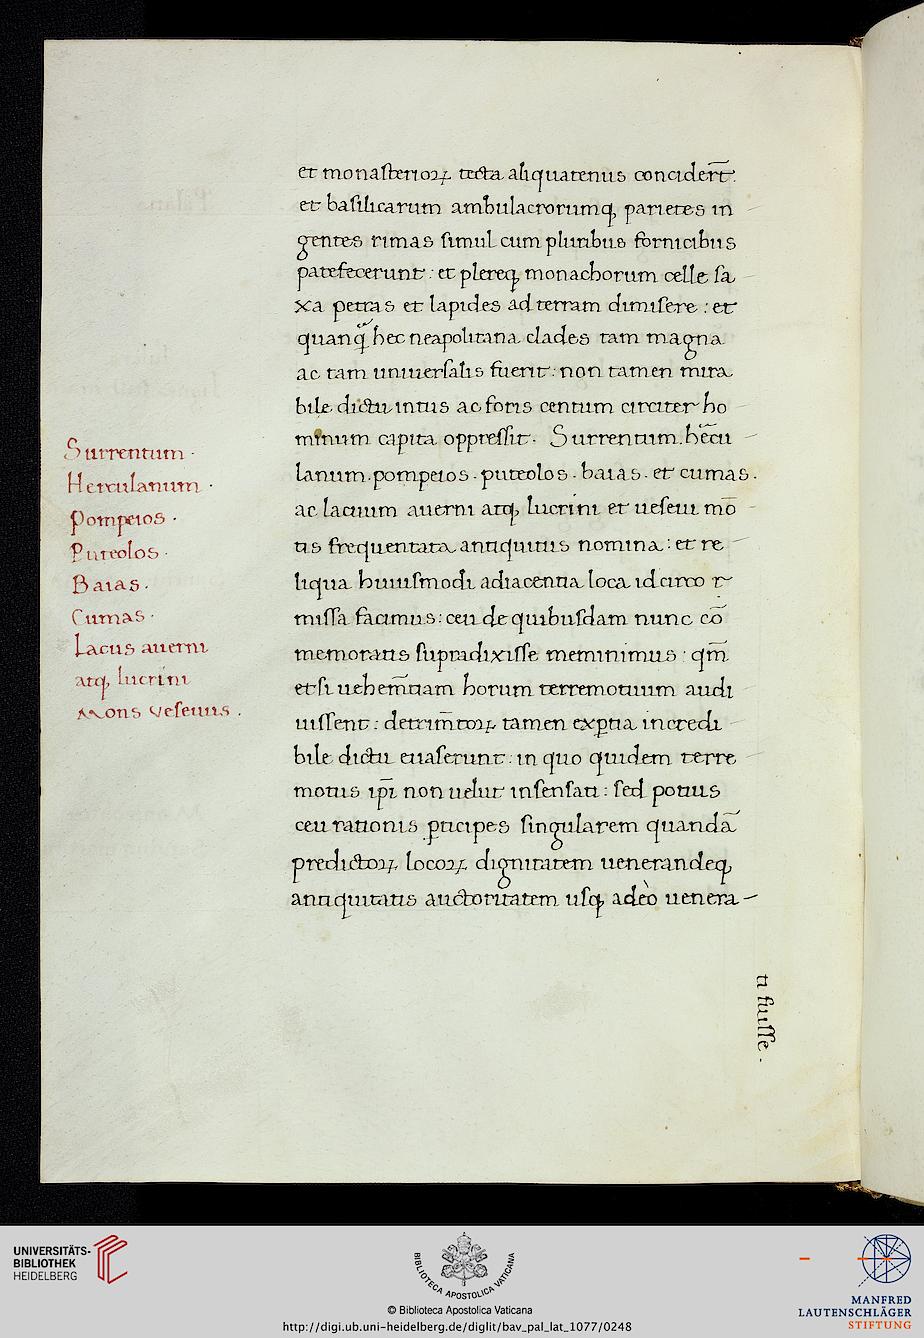 et monasterioꝝ tecta aliquatenus concider̄t
et basilicarum ambulacrorumqꝫ parietes in
gentes rimas simul cum pluribus fornicibus
patefecerunt : et plereqꝫ monachorum celle sa
xa petras et lapides ad terram dimisere : et
quanq̃ hec neapolitana clades tam magna
ac tam uniuersalis fuerit : non tamen mira
bile dictu intus ac foris centum circiter ho
minum capita oppressit. Surrentum. her̄cu
lanum. pompeios. puteolos. baias. et cumas.
ac lacuum auerni atqꝫ lucrini et ueseui mō
tis frequentata antiquitus nomina : et re
liqua huiusmodi adiacentia loca idcirco p̄r
missa facimus : ceu de quibusdam nunc cō
memoratis supradixisse meminimus : qm̄
etsi uehem̄tiam horum terremotuum audi
uissent : detrim̄toꝝ tamen exꝑtia incredi
bile dictu euaserunt : in quo quidem terre
motus ip̄i non uelut insensati : sed potius
ceu rationis ꝑticipes singularem quandā
predictoꝝ locoꝝ dignitatem uenerandeqꝫ
antiquitatis auctoritatem usqꝫ adeò uenera-
ti fuisse.
Surrentum.
Herculanum.
Pompeios.
Puteolos.
Baias.
Cumas.
Lacus auerni
atqꝫ lucrini
Mons veseuus.
UNIVERSITÄTS-
BIBLIOTHEK
HEIDELBERG
BIBLIOTECA APOSTOLICA VATICANA
© Biblioteca Apostolica Vaticana
http://digi.ub.uni-heidelberg.de/diglit/bav_pal_lat_1077/0248
MANFRED
LAUTENSCHLÄGER
STIFTUNG